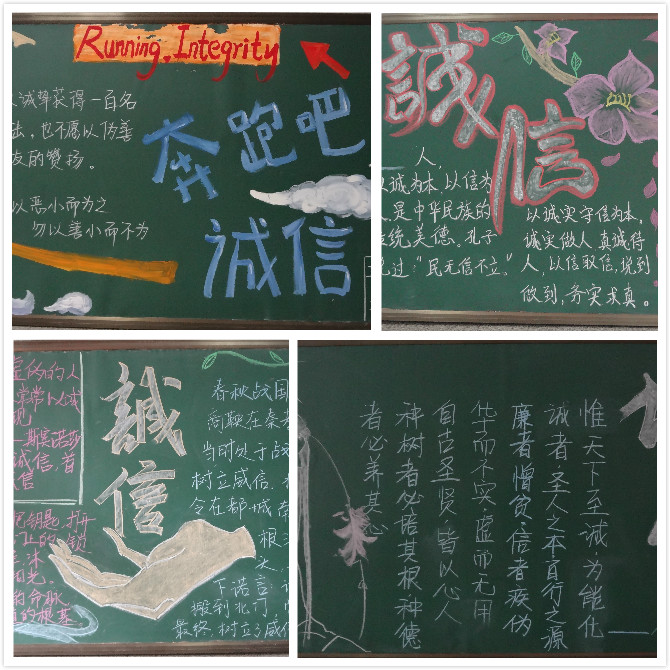 Running.Integrity
奔跑吧
诚信
诚挚获得一百名
出，也不愿以伪善
友的赞扬。
以恶小而为之
勿以善小而不为
誠信
人，
以诚为本，以信为
人，是中华民族的
传统美德。孔子
说过：“民无信不立”
以诚实守信为本，
诚实做人 真诚待
人，以信取信，说到
做到，务实求真。
的人
常常
现
—斯宾诺莎
诚信，首
信
钥匙，打开
上的 锁
沐
阳光。
的命脉
的根基
誠信
春秋战国
商鞅在秦孝
当时处于战
树立威信，
令在都城南
根三
下诺言
搬到北门，
最终，树立了威信
惟天下至诚，为能化
诚者，圣人之本百行之源
廉者憎贪，信者疾伪
华而不实，虚而无用
自古圣贤，皆以心人
种树者必培其根种德
者必养其心